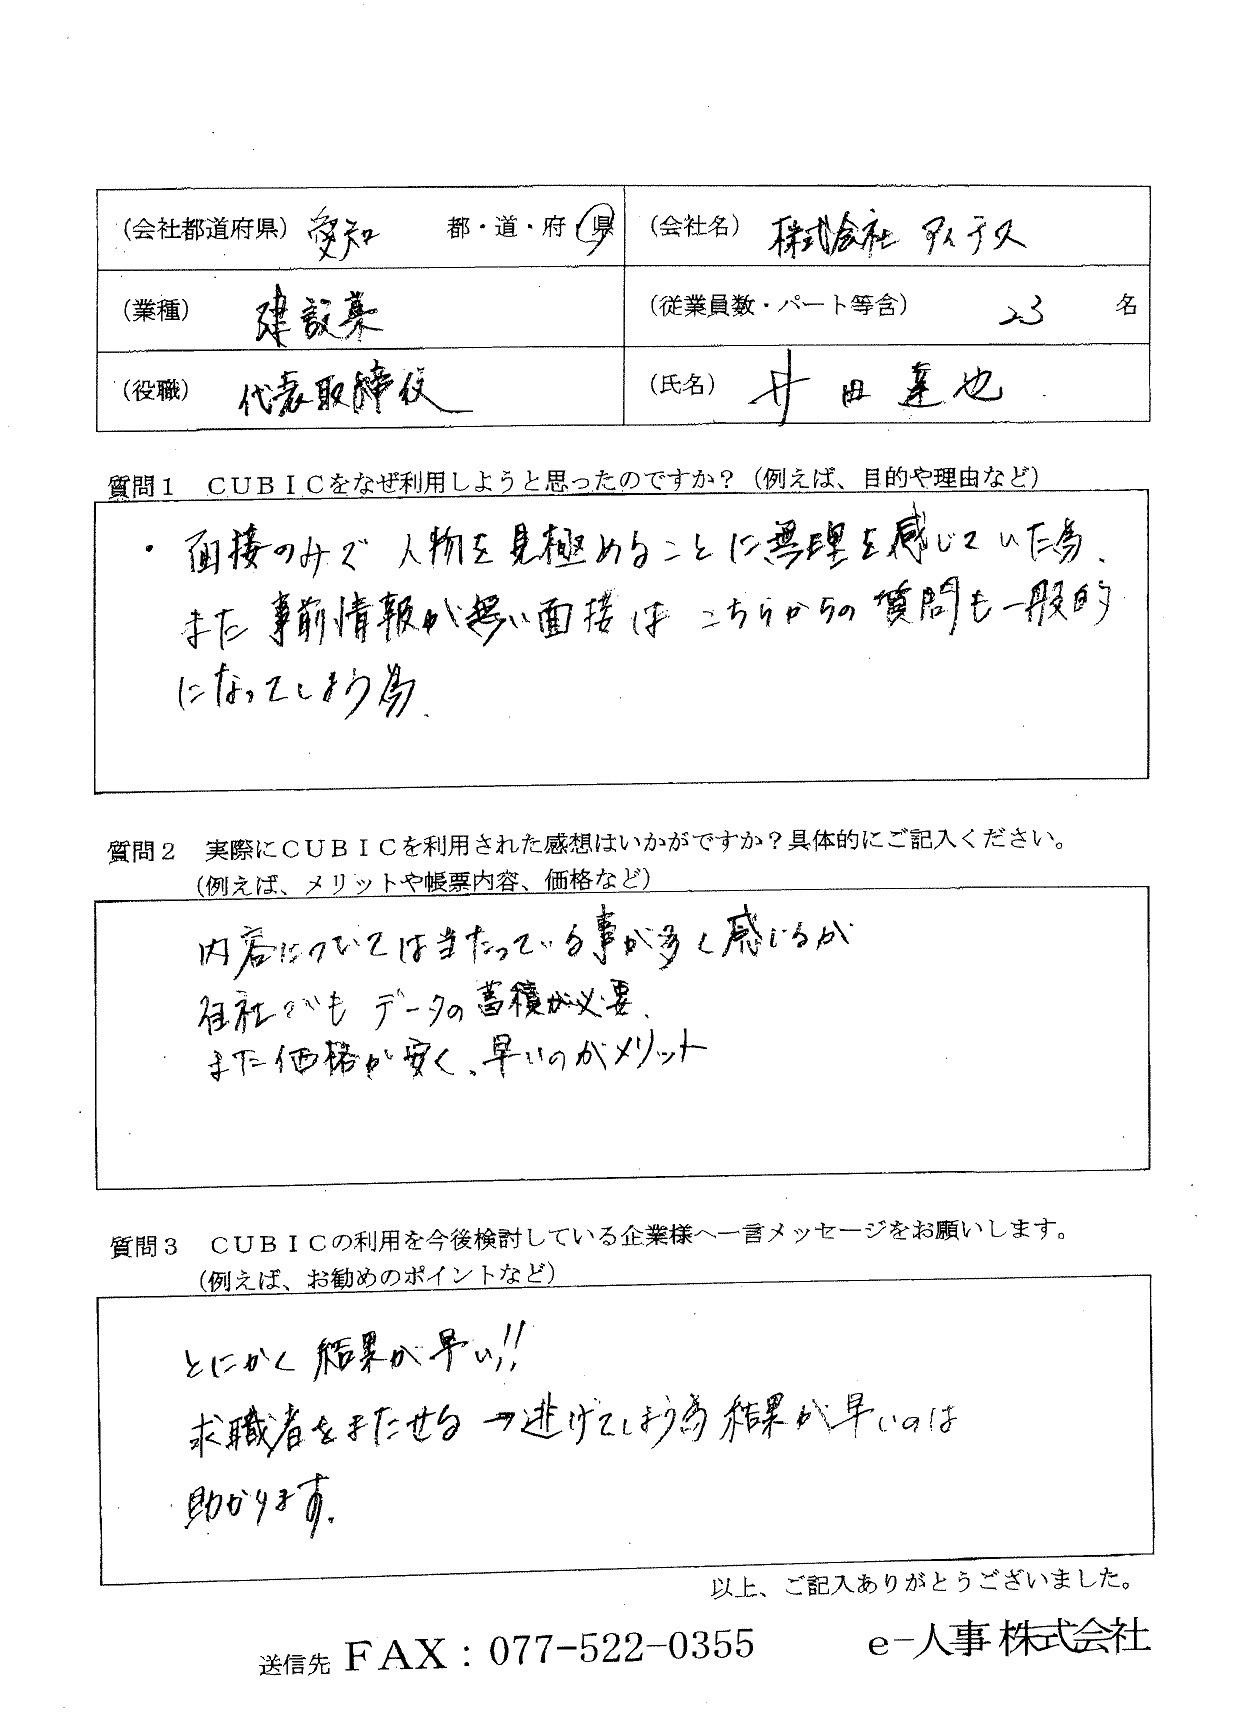 (会社都道府県) 愛知 都・道・府・県
(会社名) 株式会社 アイテス
(業種) 建設業
(従業員数・パート等含) 23 名
(役職) 代表取締役
(氏名) 井田達也
質問1 CUBICをなぜ利用しようと思ったのですか?(例えば、目的や理由など)
・面接のみで 人物を見極めることに無理を感じていた為、
また 事前情報が無い面接は こちらからの質問も一般的
になってしまう為.
質問2 実際にCUBICを利用された感想はいかがですか?具体的にご記入ください。
(例えば、メリットや帳票内容、価格など)
内容については当たっている事が多く感じるが
社でも データの蓄積が必要.
また価格が安く、早いのがメリット
質問3 CUBICの利用を今後検討している企業様へ一言メッセージをお願いします。
(例えば、お勧めのポイントなど)
とにかく 結果が早い!!
求職者をまたせる→逃げてしまう為 結果が早いのは
助かります.
以上、ご記入ありがとうございました。
送信先 FAX:077-522-0355 e-人事 株式会社